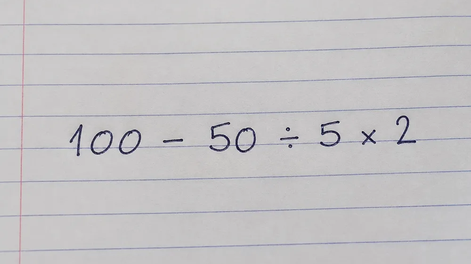 100 - 50 ÷ 5 × 2